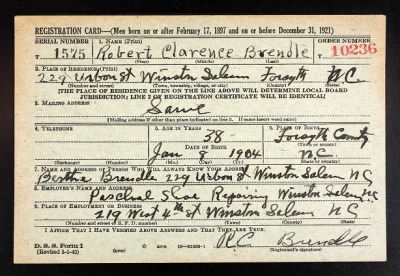 REGISTRATION CARD—(Men born on or after February 17, 1897 and on or before December 31, 1921)
SERIAL NUMBER 1. NAME (Print) ORDER NUMBER
T 1575 Robert Clarence Brendle 10236
(First) (Middle) (Last)
2. PLACE OF RESIDENCE (Print)
229 Urban St Winston Salem Forsyth N.C.
(Number and street) (Town, township, village, or city) (County) (State)
[THE PLACE OF RESIDENCE GIVEN ON THE LINE ABOVE WILL DETERMINE LOCAL BOARD
JURISDICTION; LINE 2 OF REGISTRATION CERTIFICATE WILL BE IDENTICAL]
3. MAILING ADDRESS
Same
(Mailing address if other than place indicated on line 2. If same insert word same)
4. TELEPHONE 5. AGE IN YEARS 6. PLACE OF BIRTH
38 Forsyth County
DATE OF BIRTH (Town or county)
Jan 8 1904 N.C.
(Exchange) (Number) (Mo.) (Day) (Yr.) (State or country)
7. NAME AND ADDRESS OF PERSON WHO WILL ALWAYS KNOW YOUR ADDRESS
Bertha Brendle 229 Urban St Winston Salem NC
8. EMPLOYER'S NAME AND ADDRESS
Paschal Shoe Repairing Winston Salem, NC
9. PLACE OF EMPLOYMENT OR BUSINESS
219 West 4th St Winston Salem NC
(Number and street or R. F. D. number) (Town) (County) (State)
I AFFIRM THAT I HAVE VERIFIED ABOVE ANSWERS AND THAT THEY ARE TRUE.
D. S. S. Form 1
(Revised 1-1-42) (over) R.C. Brendle